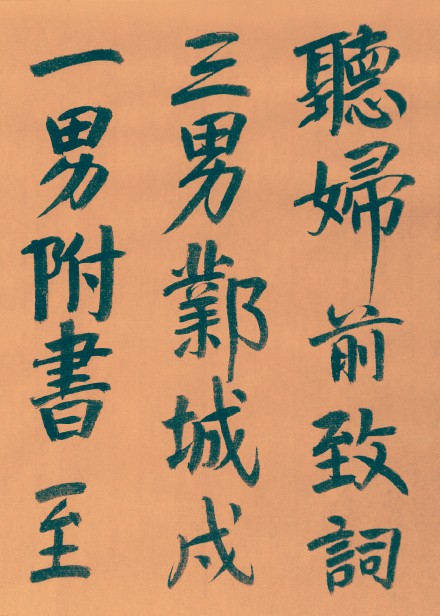 聽婦前致詞
三男鄴城戍
一男附書至